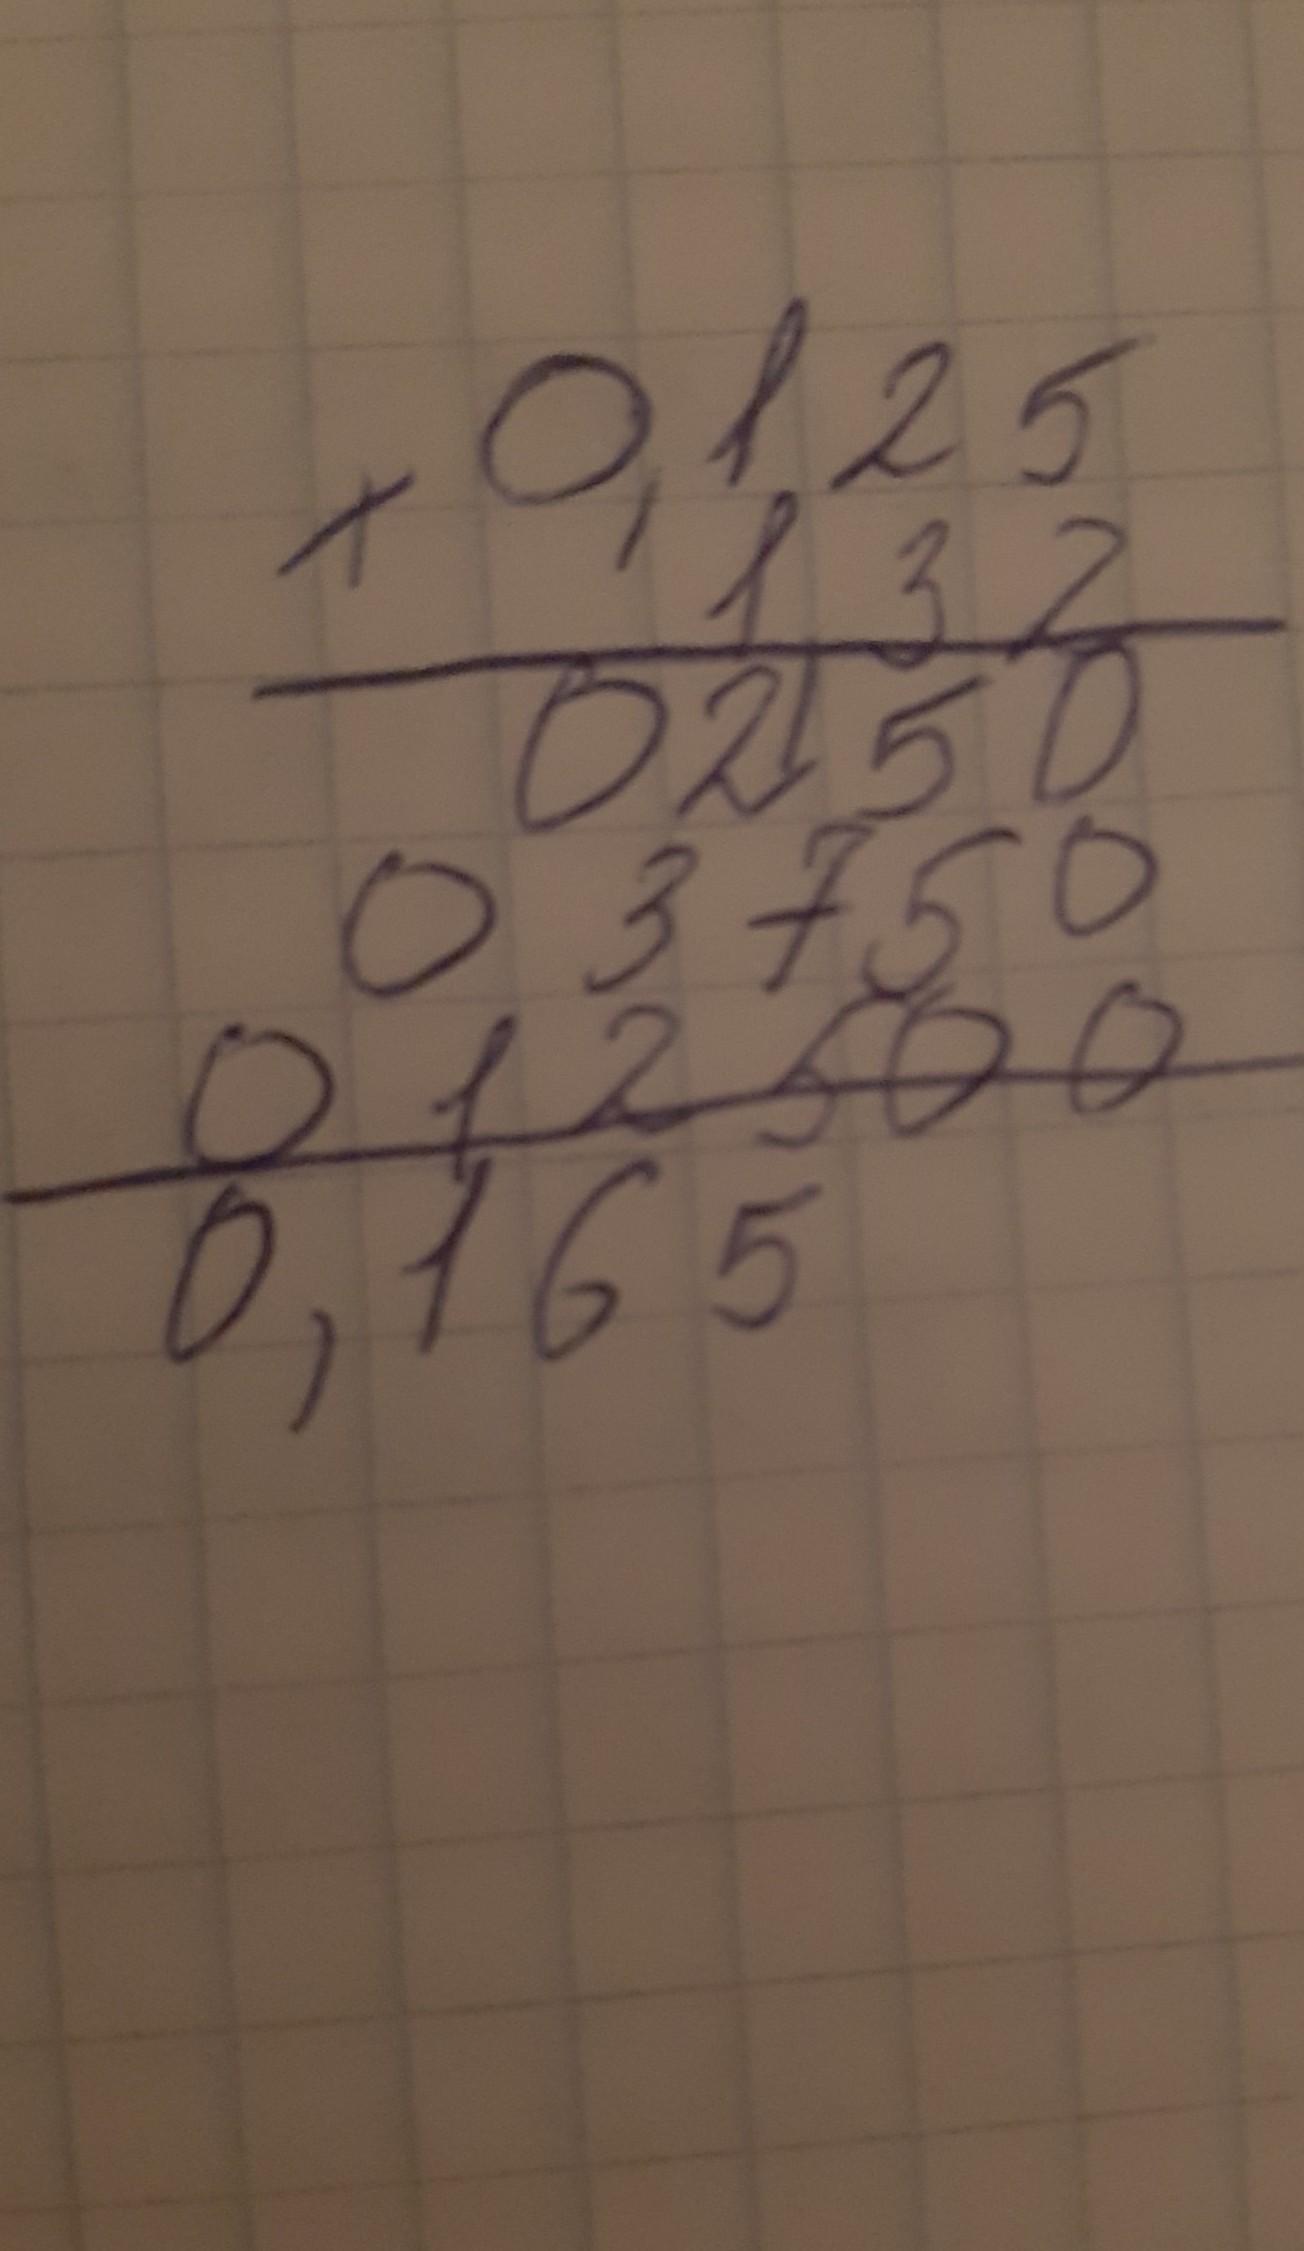 0,125
× 132
0250
03750
012500
0,165